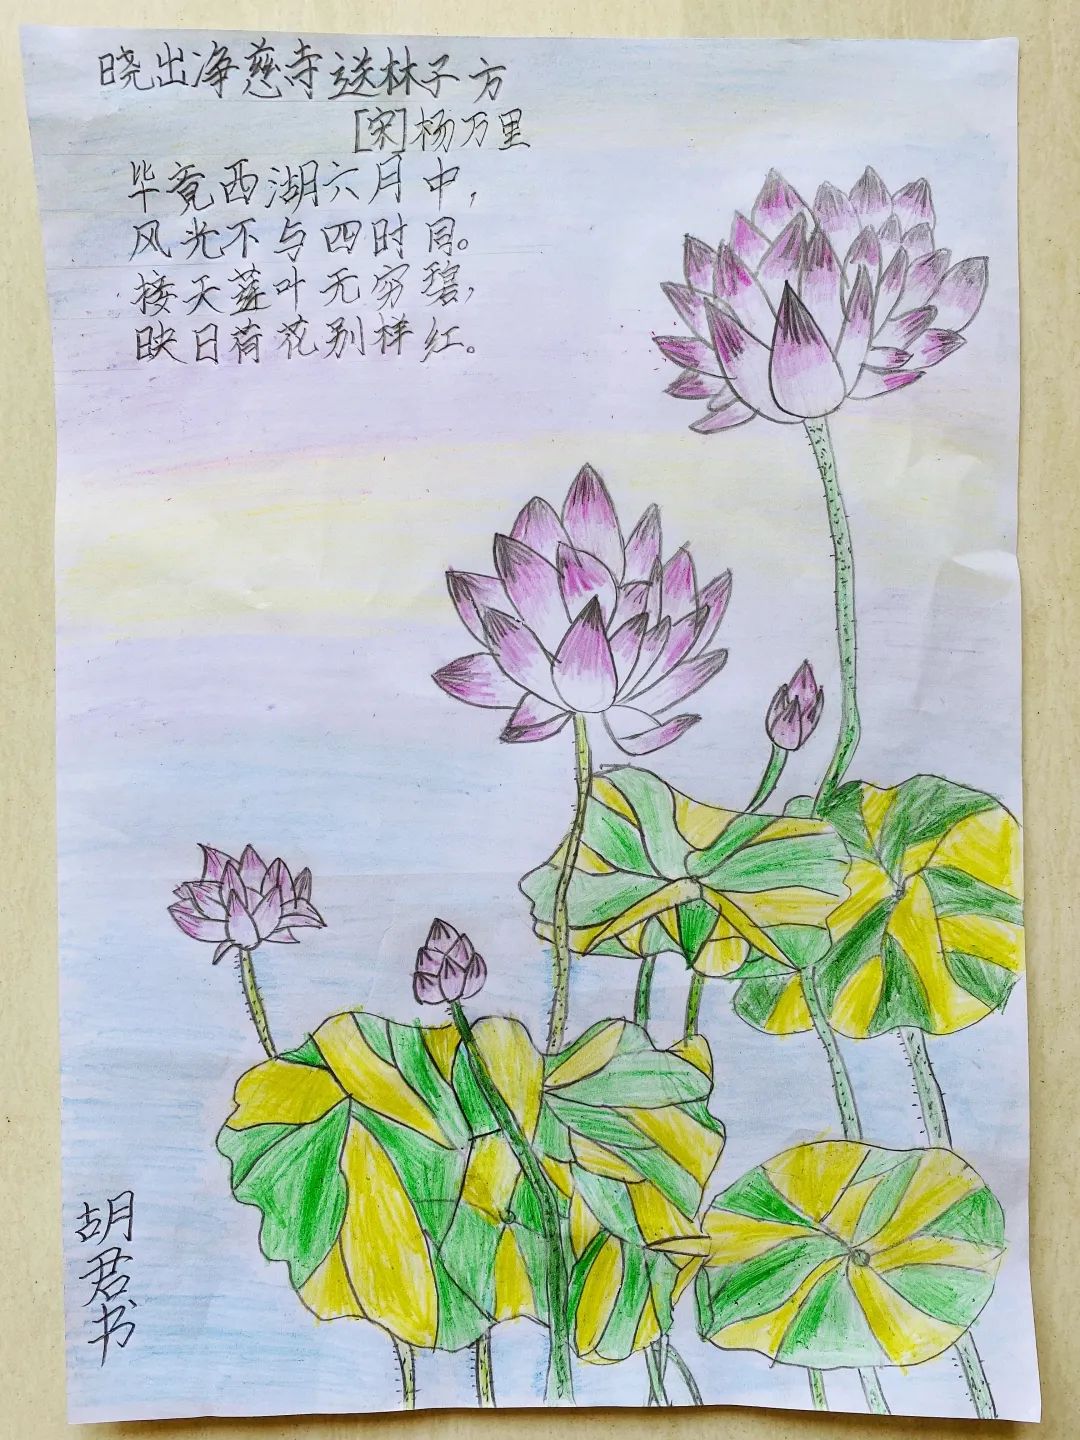 晓出净慈寺送林子方
[宋]杨万里
毕竟西湖六月中，
风光不与四时同。
接天莲叶无穷碧，
映日荷花别样红。
胡君书